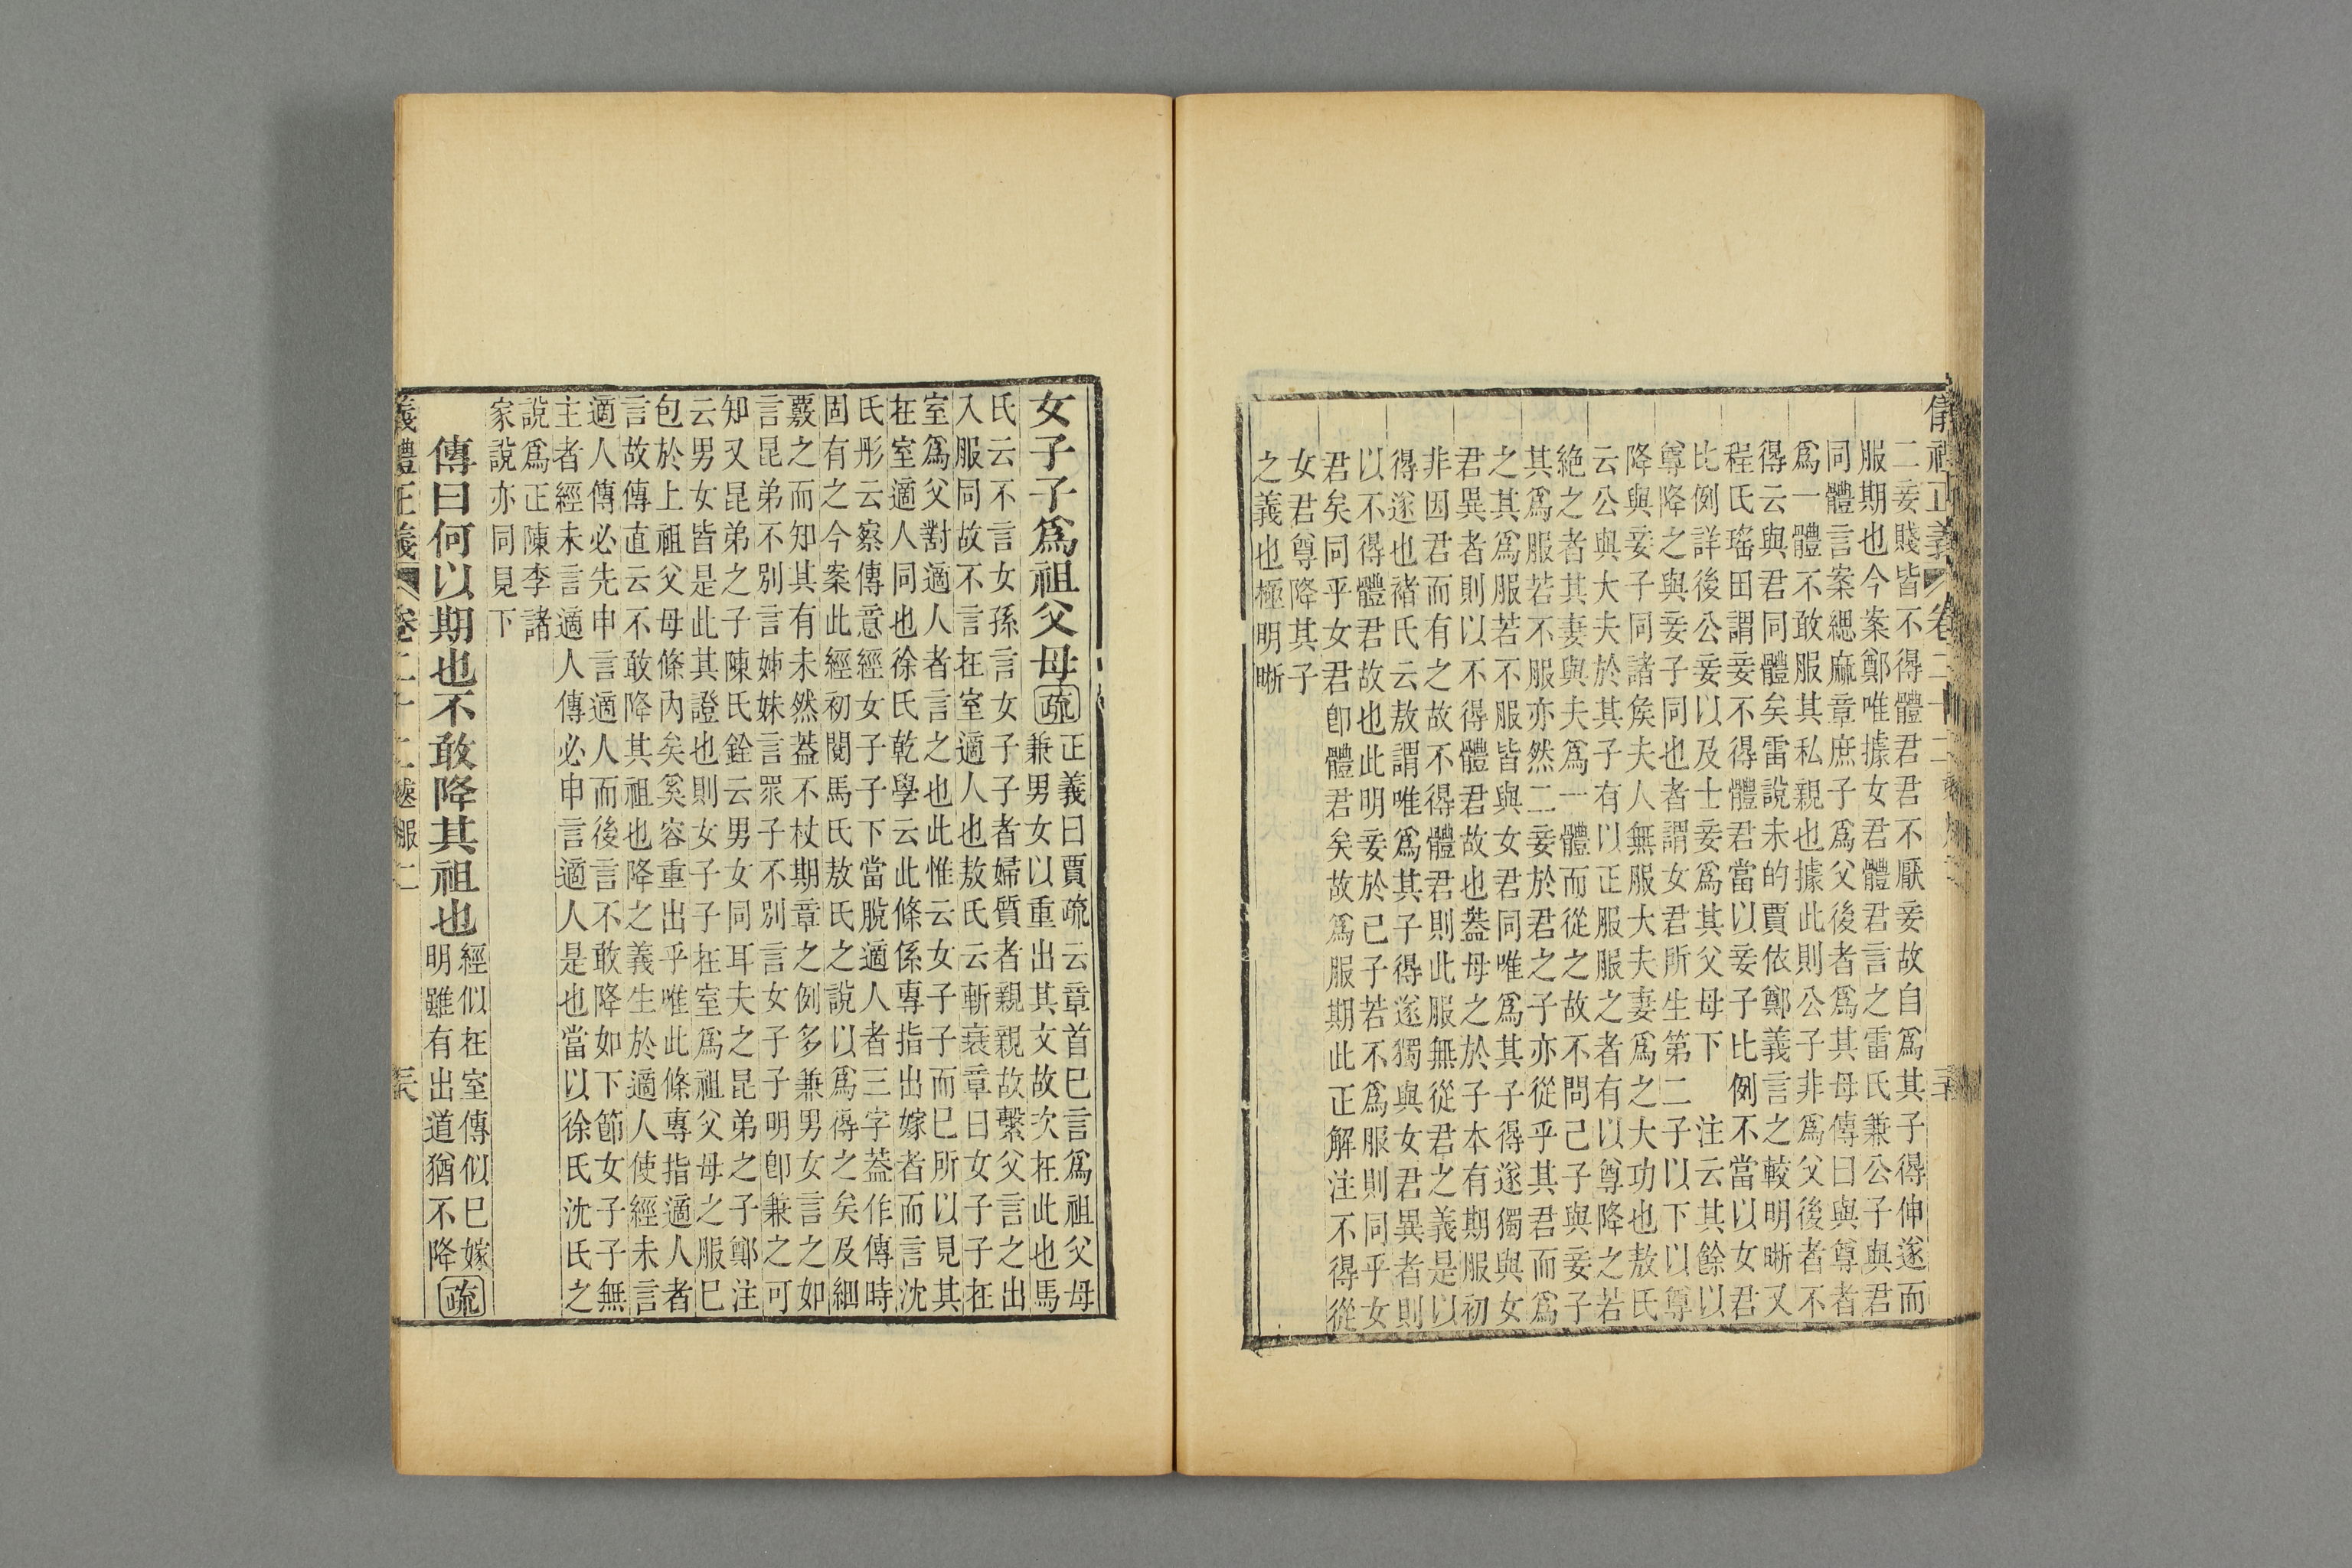 二妾賤皆不得體君君不厭妾故自爲其子得伸遂而
服期也今案鄭唯據女君體君言之雷氏兼公子與君
同體言案緦麻章庶子爲父後者爲其母傳曰與尊者
爲一體不敢服其私親也據此則公子非爲父後者不
得云與君同體矣雷說未的賈依鄭義言之較明晰又
程氏瑤田謂妾不得體君當以妾子比例不當以女君
比例詳後公妾以及士妾爲其父母下 注云其餘以
尊降之與妾子同也者謂女君所生第二子以下以尊
降與妾子同諸矦夫人無服大夫妻爲之大功也敖氏
云公與大夫於其子有以正服服之者有以尊降之若
絶之者其妻與夫爲一體而從之故不問己子與妾子
其爲服若不服亦然二妾於君之子亦從乎其君而爲
之其爲服若不服皆與女君同唯爲其子得遂獨與女
君異者則以不得體君故也葢母之於子本有期服初
非因君而有之故不得體君則此服無從君之義是以
得遂也褚氏云敖謂唯爲其子得遂獨與女君異者則
以不得體君故也此明妾於己子若不爲服則同乎女
君矣同乎女君卽體君矣故爲服期此正解注不得從
女君尊降其子
之義也極明晰
女子子爲祖父母疏
正義曰賈疏云章首已言爲祖父母
兼男女以重出其文故次在此也馬
氏云不言女孫言女子子者婦質者親親故繫父言之出
入服同故不言在室適人也敖氏云斬衰章曰女子子在
室爲父對適人者言之也此惟云女子子而已所以見其
在室適人同也徐氏乾學云此條係專指出嫁者而言沈
氏彤云察傳意經女子子下當脫適人者三字葢作傳時
固有之今案此經初閱馬氏敖氏之說以爲得之矣及細
覈之而知其有未然葢不杖期章之例多兼男女言之如
言昆弟不別言姊妹言眾子不別言女子子明卽兼之可
知又昆弟之子陳氏銓云男女同耳夫之昆弟之子鄭注
云男女皆是此其證也則女子子在室爲祖父母之服已
包於上祖父母條內矣奚容重出乎唯此條專指適人者
言故傳直云不敢降其祖也降之義生於適人使經未言
適人傳必先申言適人而後言不敢降如下節女子子無
主者經未言適人傳必申言適人是也當以徐氏沈氏之
說爲正陳李諸
家說亦同見下
傳曰何以期也不敢降其祖也
經似在室傳似已嫁
明雖有出道猶不降疏